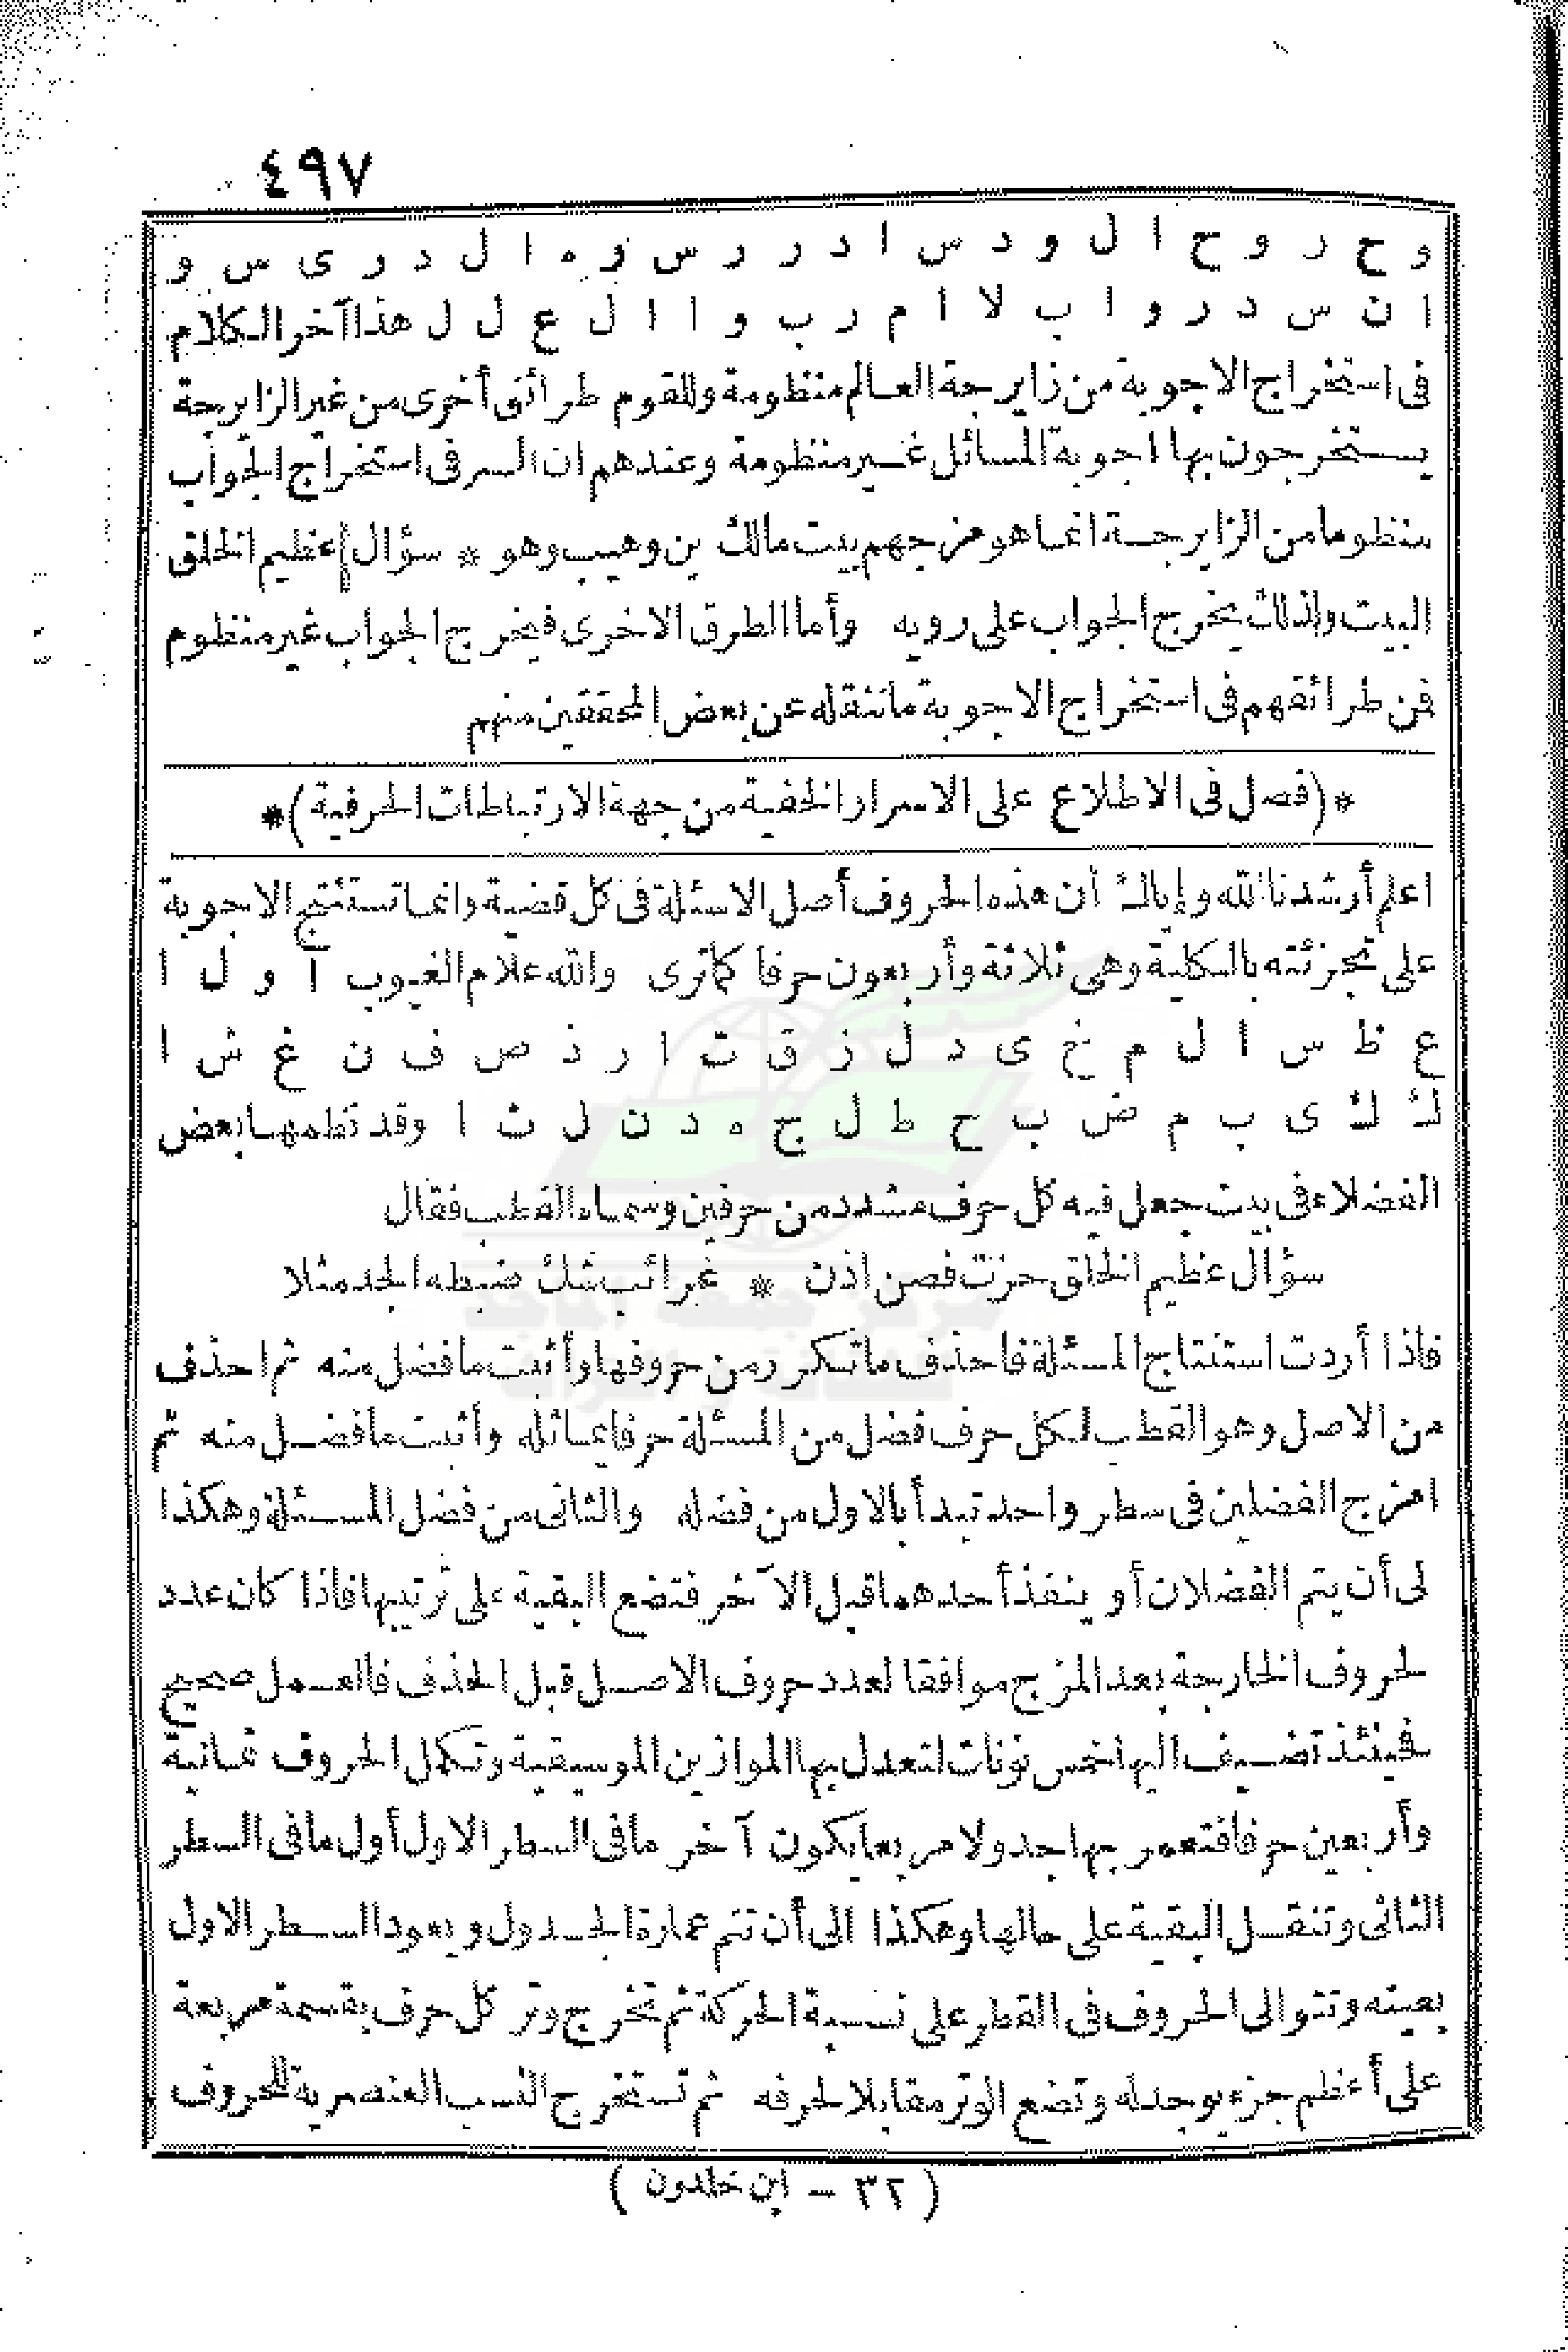 ٤٩٧
و ح ر و ح ا ل و د س ا د ر ر س ر ه ا ل د ر ى س و
ا ن س د ر و ا ب لا ا م ر ب و ا ا ل ع ل ل هذا آخر الكلام
فى استخراج الاجوبة من زايرجة العالم منظومة وللقوم طرائق أخرى من غير الزايرجة
يستخرجون بها اجوبة المسائل غير منظومة وعندهم ان السر فى استخراج الجواب
منظوما من الزايرجة انما هو مزجهم بيت مالك بن وهيب وهو * سؤال عظيم الخلق
البيت ولذلك يخرج الجواب على رويه وأما الطرق الاخرى فيخرج الجواب غير منظوم
فمن طرائقهم فى استخراج الاجوبة ما ننقله عن بعض المحققين منهم
*(فصل فى الاطلاع على الاسرار الخفية من جهة الارتباطات الحرفية)*
اعلم أرشدنا الله وإياك أن هذه الحروف أصل الاسئلة فى كل قضية وانما تستنتج الاجوبة
على تجزئته بالكلية وهى ثلاثة وأربعون حرفا كما ترى والله علام الغيوب ا و ل ا
ع ظ س ا ل م خ ى د ل ز ق ت ا ر ذ ص ف ن غ ش ا
ك ك ى ب م ض ب ح ط ل ج ه د ن ل ث ا وقد نظمها بعض
الفضلاء فى بيت جعل فيه كل حرف مشدد من حرفين وسماه القطب فقال
سؤال عظيم الخلق حزت فصن اذن * غرائب شك ضبطه الجد مثلا
فاذا أردت استنتاج المسئلة فاحذف ما تكرر من حروفها وأثبت ما فضل منه ثم احذف
من الاصل وهو القطب لكل حرف فضل من المسئلة حرفا يماثله وأثبت ما فضل منه ثم
امزج الفضلين فى سطر واحد تبدأ بالاول من فضله والثانى من فضل المسئلة وهكذا
لى أن يتم الفضلان أو ينفذ أحدهما قبل الآخر فتضع البقية على ترتيبها فاذا كان عدد
لحروف الخارجة بعد المزج موافقا لعدد حروف الاصل قبل الحذف فالعمل صحيح
فحينئذ تضيف اليها خمس نونات لتعدل بها الموازين الموسيقية وتكمل الحروف ثمانية
وأربعين حرفا فتعمر بها جدولا مربعا يكون آخر ما فى السطر الاول أول ما فى السطر
الثانى وتنقل البقية على حالها وهكذا الى أن تتم عمارة الجدول ويعود السطر الاول
بعينه وتتوالى الحروف فى القطر على نسبة الحركة ثم تخرج وتر كل حرف بقسمة مربعة
على أعظم جزء يوجد له وتضع الوتر مقابلا لحرفه ثم تستخرج النسب العنصرية للحروف
(٣٢ – ابن خلدون)